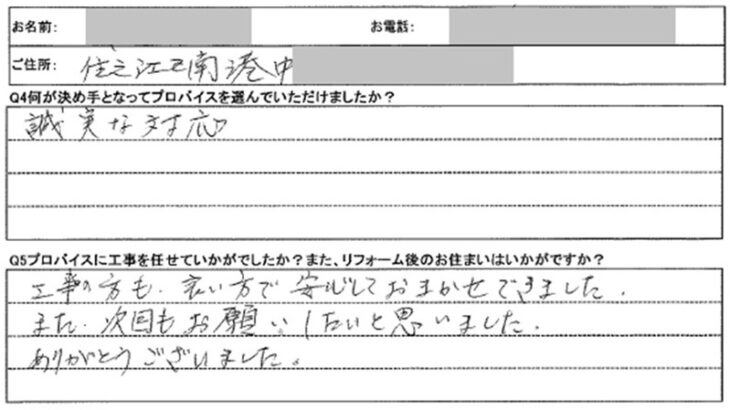 お名前: お電話:
ご住所: 住之江区南港中
Q4何が決め手となってプロバイスを選んでいただけましたか？
誠実な対応
Q5プロバイスに工事を任せていかがでしたか？また、リフォーム後のお住まいはいかがですか？
工事の方も、良い方で安心しておまかせできました。
また、次回もお願いしたいと思いました。
ありがとうございました。